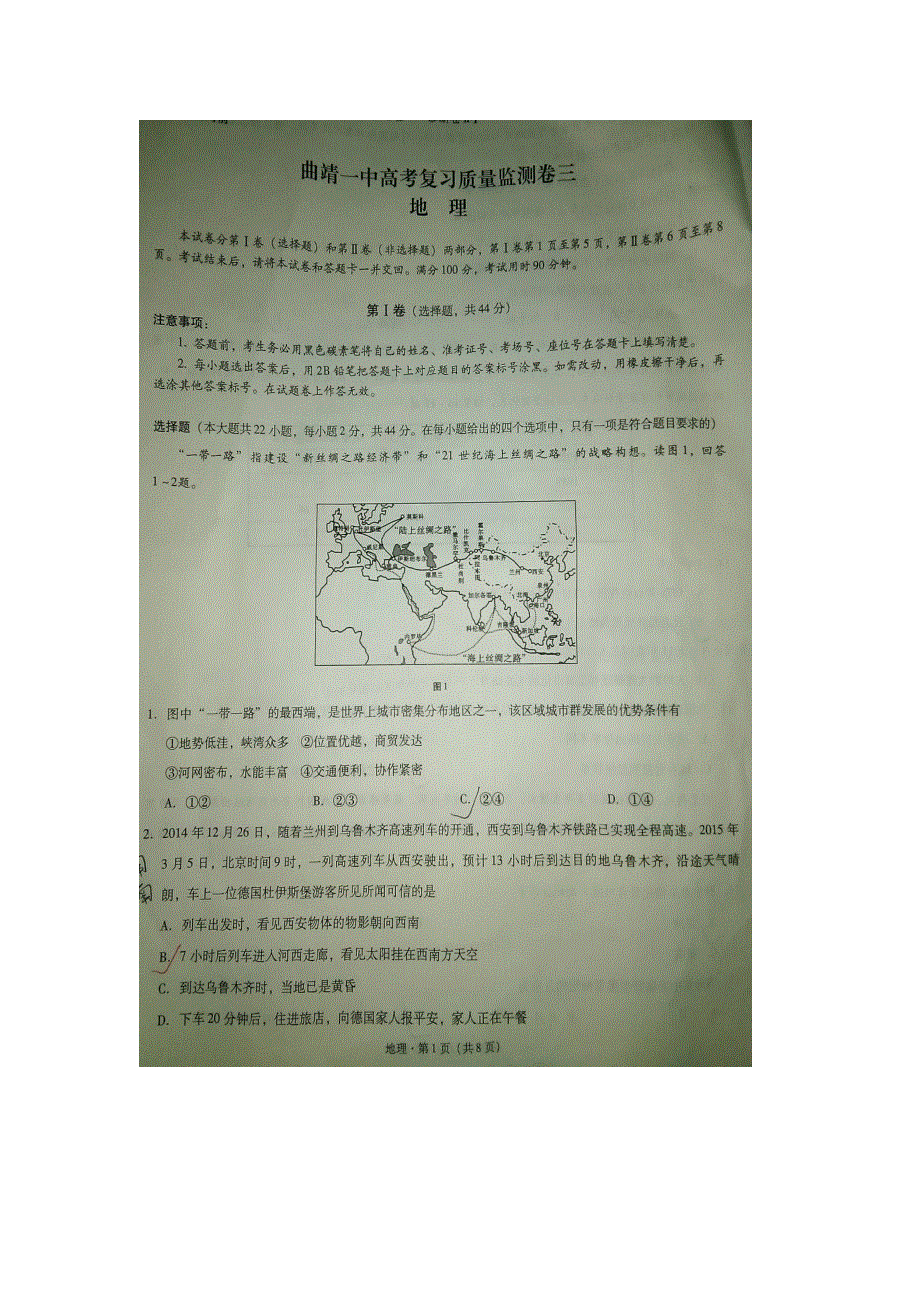 曲靖一中高考复习质量监测卷三
地 理
本试卷分第Ⅰ卷（选择题）和第Ⅱ卷（非选择题）两部分，第Ⅰ卷第1页至第5页，第Ⅱ卷第6页至第8
页。考试结束后，请将本试卷和答题卡一并交回。满分100分，考试用时90分钟。
第Ⅰ卷（选择题，共44分）
注意事项：
1. 答题前，考生务必用黑色碳素笔将自己的姓名、准考证号、考场号、座位号在答题卡上填写清楚。
2. 每小题选出答案后，用2B铅笔把答题卡上对应题目的答案标号涂黑。如需改动，用橡皮擦干净后，再
选涂其他答案标号。在试题卷上作答无效。
选择题（本大题共22小题，每小题2分，共44分。在每小题给出的四个选项中，只有一项是符合题目要求的）
“一带一路”指建设“新丝绸之路经济带”和“21世纪海上丝绸之路”的战略构想。读图1，回答
1～2题。
莫斯科
“陆上丝绸之路”
威尼斯
伊斯坦布尔
德黑兰
乌鲁木齐
北京
兰州
西安
泉州
广州
北海
海口
加尔各答
科伦坡
吉隆坡
“海上丝绸之路”
图1
1. 图中“一带一路”的最西端，是世界上城市密集分布地区之一，该区域城市群发展的优势条件有
①地势低洼，峡湾众多 ②位置优越，商贸发达
③河网密布，水能丰富 ④交通便利，协作紧密
A. ①② B. ②③ C. ②④ D. ①④
2. 2014年12月26日，随着兰州到乌鲁木齐高速列车的开通，西安到乌鲁木齐铁路已实现全程高速。2015年
3月5日，北京时间9时，一列高速列车从西安驶出，预计13小时后到达目的地乌鲁木齐，沿途天气晴
朗，车上一位德国杜伊斯堡游客所见所闻可信的是
A. 列车出发时，看见西安物体的物影朝向西南
B. 7小时后列车进入河西走廊，看见太阳挂在西南方天空
C. 到达乌鲁木齐时，当地已是黄昏
D. 下车20分钟后，住进旅店，向德国家人报平安，家人正在午餐
地理·第1页（共8页）